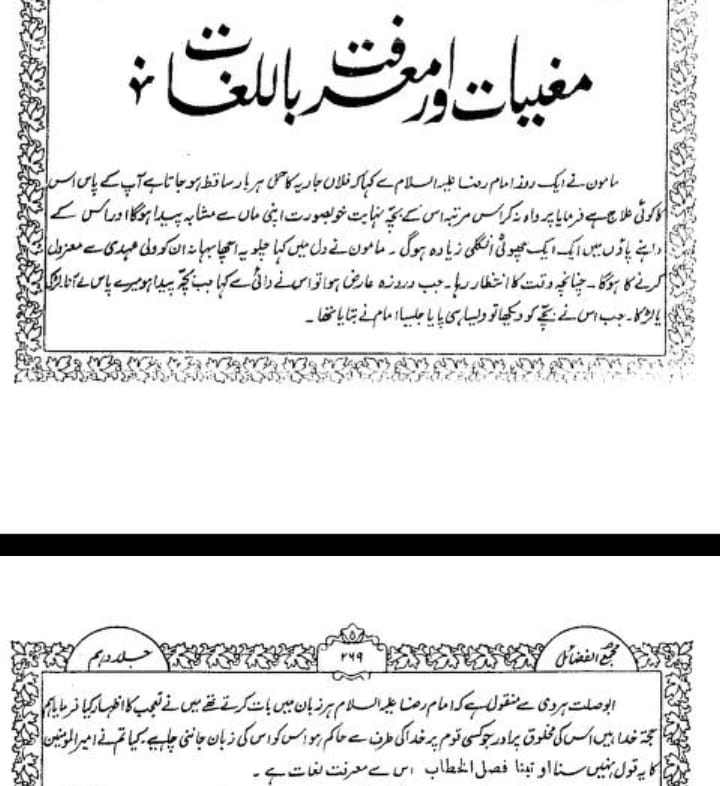 مغیبات اور معرفت باللغات
مامون نے ایک روز امام رضا علیہ السلام سے کہا کہ فلاں جاریہ کا حمل ہر بار ساقط ہو جاتا ہے آپ کے پاس اس
کا کوئی علاج ہے فرمایا پرواہ نہ کر اس مرتبہ اس کے بچہ نہایت خوبصورت اپنی ماں سے مشابہ پیدا ہوگا اور اس کے
داہنے پاؤں میں ایک ایک چھوٹی انگلی زیادہ ہوگی ۔ مامون نے دل میں کہا چلو یہ اچھا بہانہ ان کو ولی عہدی سے معزول
کرنے کا ہوگا ۔ چنانچہ وقت کا انتظار رہا ۔ جب دردزہ عارض ہوا تو اس نے دائی سے کہا جب بچہ پیدا ہو میرے پاس لے آنا لڑکی
یا لڑکا ۔ جب اس نے بچے کو دیکھا تو ویسا ہی پایا جیسا امام نے بتایا تھا ۔
مجمع الفضائل
۲۶۹
جلد دہم
ابوصلت ہروی سے منقول ہے کہ امام رضا علیہ السلام ہر زبان میں بات کرتے تھے میں نے تعجب کا اظہار کیا فرمایا ہم
حجۃ خدا ہیں اس کی مخلوق پر اور جو کسی قوم پر خدا کی طرف سے حاکم ہو اس کو اس کی زبان جاننی چاہیے کیا تم نے امیر المومنین
کا یہ قول نہیں سنا او تینا فصل الخطاب اس سے معرفت لغات ہے ۔